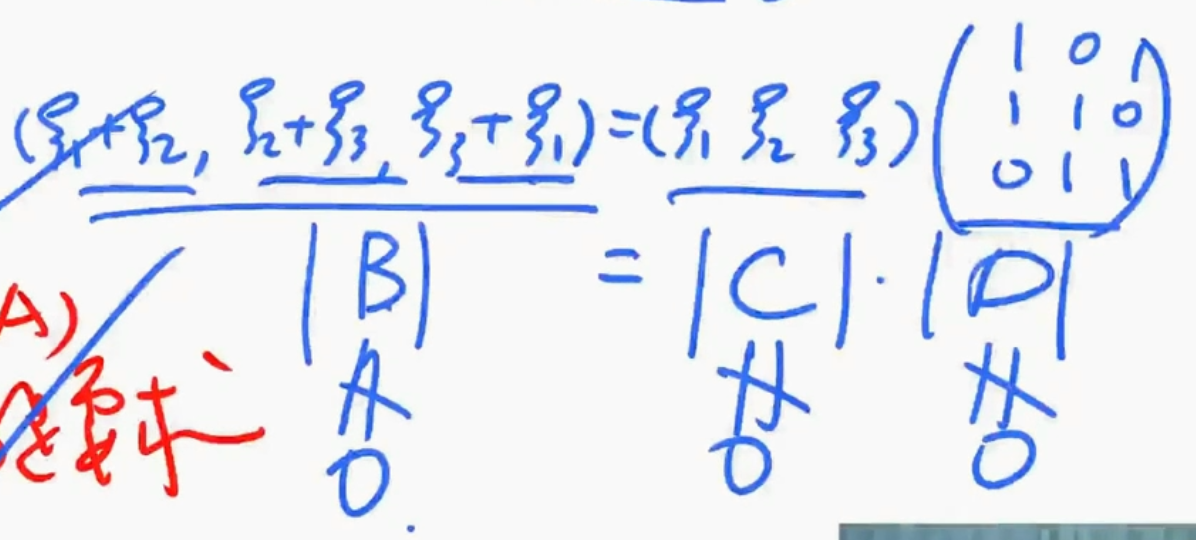 (ξ₁+ξ₂, ξ₂+ξ₃, ξ₃+ξ₁)=(ξ₁ ξ₂ ξ₃)(1 0 1
1 1 0
0 1 1)
|B| = |C|·|D|
A)
要求
≠ ≠ ≠
0 0 0